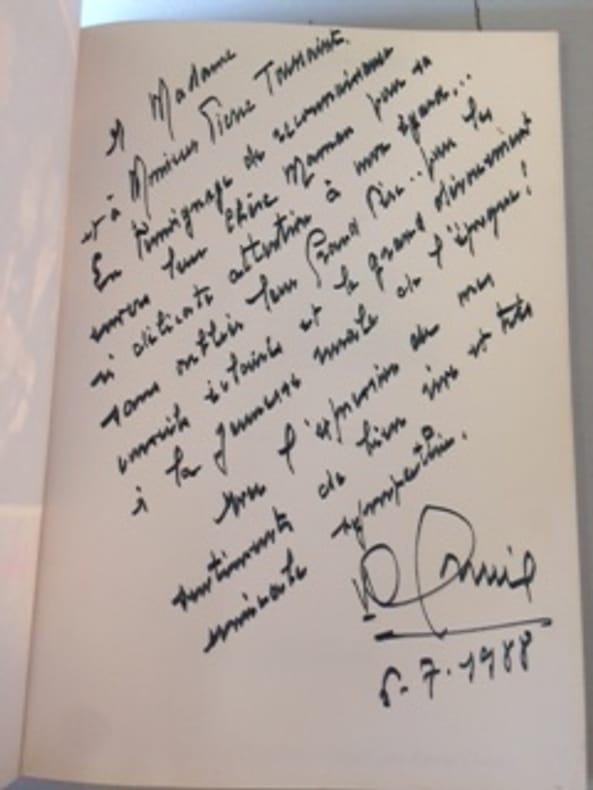 A Madame
et à Monsieur Pierre Toussaint.
En témoignage de reconnaissance
envers leur chère Maman pour sa
si délicate attention à mon égard...
sans oublier leur Grand Père.. pour les
conseils éclairés et le grand dévouement
à la jeunesse rurale de l'époque!
avec l'expression de mes
sentiments de bien vive et très
sympathie.
6-7-1988